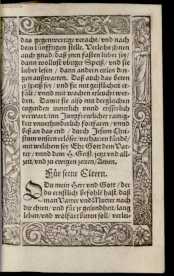 das gegenwertige veracht/ vnd nach
dem künfftigen stelle. Verleihe jhnen
auch gnad/ daß jhen fasten lieber sey/
dann wollust vbriger Speiß/ vnd sie
lieber lesen/ dann andern eiteln din-
gen außwarten. Daß auch das beten
je speiß sey/ vnd sie mit geistlichen er-
füllt/ vnd mit wachen erleucht wer-
den. Damit sie also mit dergleichen
tugenden innerlich vnnd eusserlich
verwart/ im Jungfrewlicher rainig-
keit vnuerhinderlich fortfaren/ vnnd
biß an das end / durch Jesum Chri-
stum vnsern erlöser/ verharren künde/
mit welchem sey Ehr Gott dem Vat-
ter/ vnnd dem H. Geist/ jetzt vnd all-
zeit/ vnd zu ewigen zeiten/ Amen.
Für seine Eltern.
O Du mein Herr vnd Gott / der
du ernstlich befohlē hast/ daß
man Vatter vnd Mutter nach
dir ehren/ vnd für je gesundheit/ lang
leben/ vnd wolfart bitten soll/ verlei-